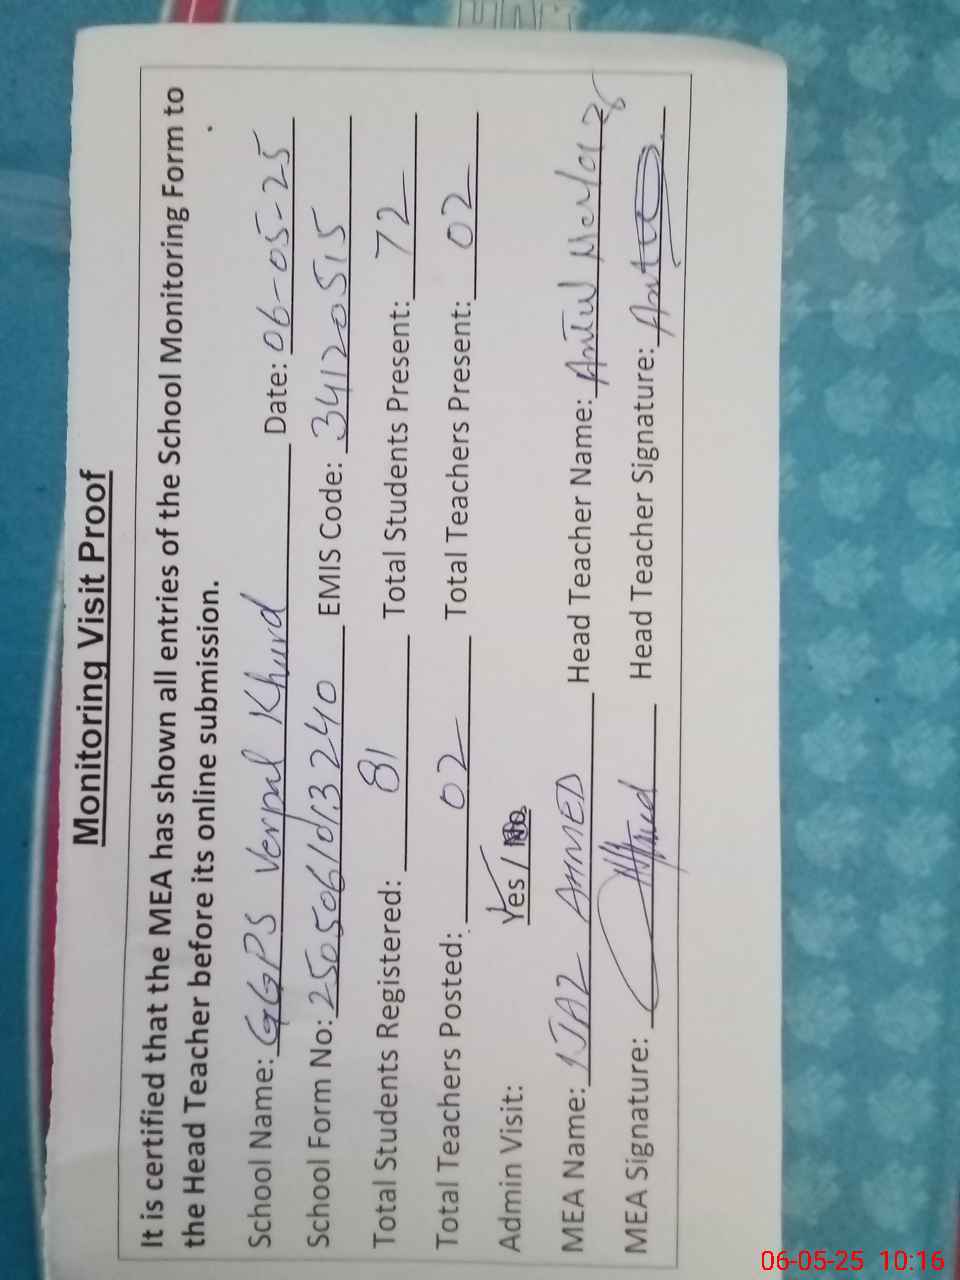 Monitoring Visit Proof
It is certified that the MEA has shown all entries of the School Monitoring Form to
the Head Teacher before its online submission.
School Name: GGPS Verpal Khurd Date: 06-05-25
School Form No: 2505061013240 EMIS Code: 34120515
Total Students Registered: 81 Total Students Present: 72
Total Teachers Posted: 02 Total Teachers Present: 02
Admin Visit: Yes / No
MEA Name: IJAZ AHMED Head Teacher Name:
MEA Signature: Head Teacher Signature:
06-05-25 10:16